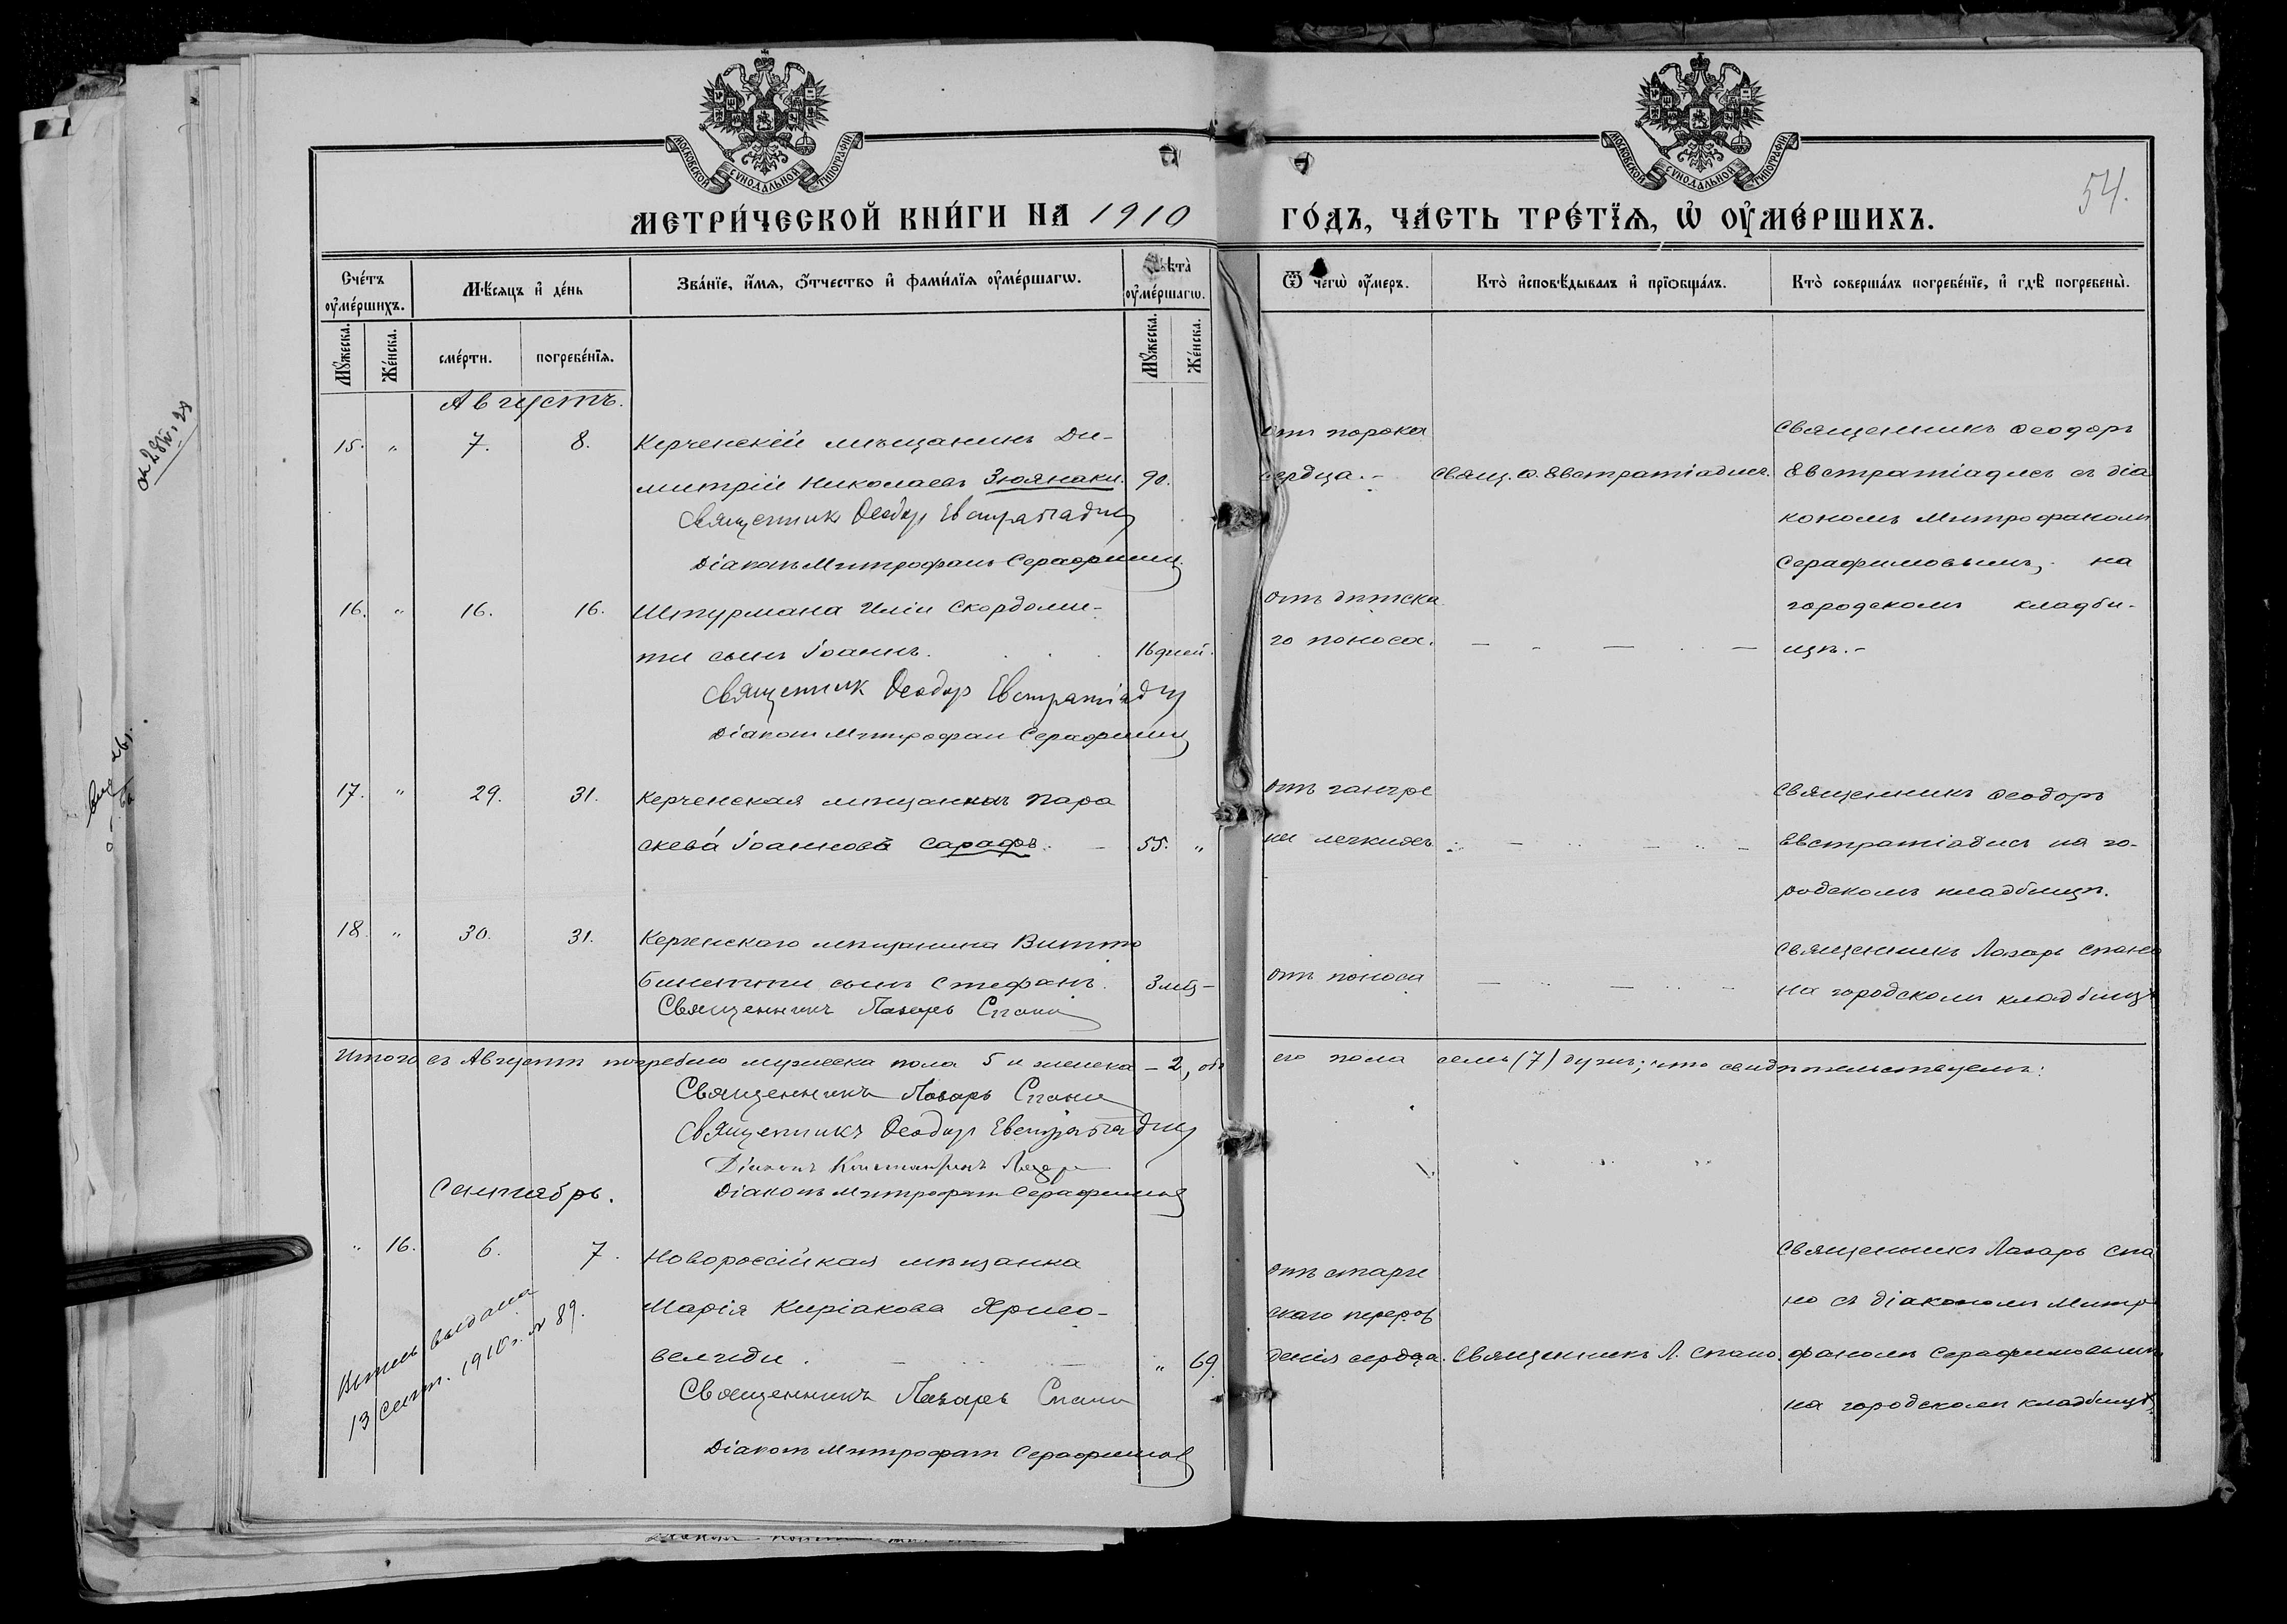 МОСКОВСКОЙ СѴНОДАЛЬНОЙ ТИПОГРАФІИ
МОСКОВСКОЙ СѴНОДАЛЬНОЙ ТИПОГРАФІИ
54.
МЕТРИ́ЧЕСКОЙ КНИ́ГИ НА 1910 ГО́ДЪ, ЧА́СТЬ ТРЕ́ТЇѦ, Ѡ҆ ОУ҆МЕ́РШИХЪ.
Сче́тъ оу҆ме́ршихъ.
Мѣ́сяцъ и҆ де́нь
Зва́нїе, и҆́мѧ, ѻ҆́тчество и҆ фами́лїѧ оу҆ме́ршагѡ.
Лѣ́та̀ оу҆ме́ршагѡ.
Ѿ чегѡ̀ оу҆́меръ.
Кто̀ и҆сповѣ́дывалъ и҆ прїобща́лъ.
Кто̀ соверша́лъ погребе́нїе, и҆ гдѣ̀ погребены̀.
Мꙋ́жеска.
Же́нска.
сме́рти.
погребе́нїѧ.
Мꙋ́жеска.
Же́нска.
Августъ.
15. " 7. 8. Керченскій мѣщанинъ Ди-
митрій Николаевъ Зюянаки. 90.
Священникъ Ѳеодоръ Евстратіадисъ
Діаконъ Митрофанъ Серафимовъ
отъ порока
сердца.-
Свящ. Ѳ. Евстратіадисъ.
Священникъ Ѳеодоръ
Евстратіадисъ съ діа
кономъ Митрофаномъ
Серафимовымъ, на
городскомъ кладби-
щѣ.-
16. " 16. 16. Штурмана Иліи Скордоми-
ти сынъ Іоаннъ. 16 дней.
Священникъ Ѳеодоръ Евстратіадисъ
Діаконъ Митрофанъ Серафимовъ
отъ дѣтска
го поноса.
17. " 29. 31. Керченская мѣщанка Пара
скева Іоаннова Сарафъ. 55. "
отъ гангре
ны легкихъ
Священникъ Ѳеодоръ
Евстратіадисъ на го-
родскомъ кладбищѣ.
18. " 30. 31. Керченскаго мѣщанина Витто
сынъ Стефанъ. 3 мѣс -
Священникъ Лазарь Спано
отъ поноса
Священникъ Лазарь Спано
на городскомъ кладбищѣ
Итого въ Августѣ погребено мужеска пола 5 и женска - 2, обо
его пола семь (7) душъ; что свидѣтельствуемъ:
Священникъ Лазарь Спано
Священникъ Ѳеодоръ Евстратіадисъ
Діаконъ Константинъ
Діаконъ Митрофанъ Серафимовъ
Сентябрь.
" 16. 6. 7. Новороссійская мѣщанка
Марія Киріакова Хрисо-
велиди. " 69.
Священникъ Лазарь Спано
Діаконъ Митрофанъ Серафимовъ
отъ старче
скаго перерож
денія сердца.
Священникъ Л. Спано.
Священникъ Лазарь Спа
но съ діакономъ Митро
фаномъ Серафимовымъ
на городскомъ кладбищѣ.
выдана
13 Сент. 1910 г. № 89.